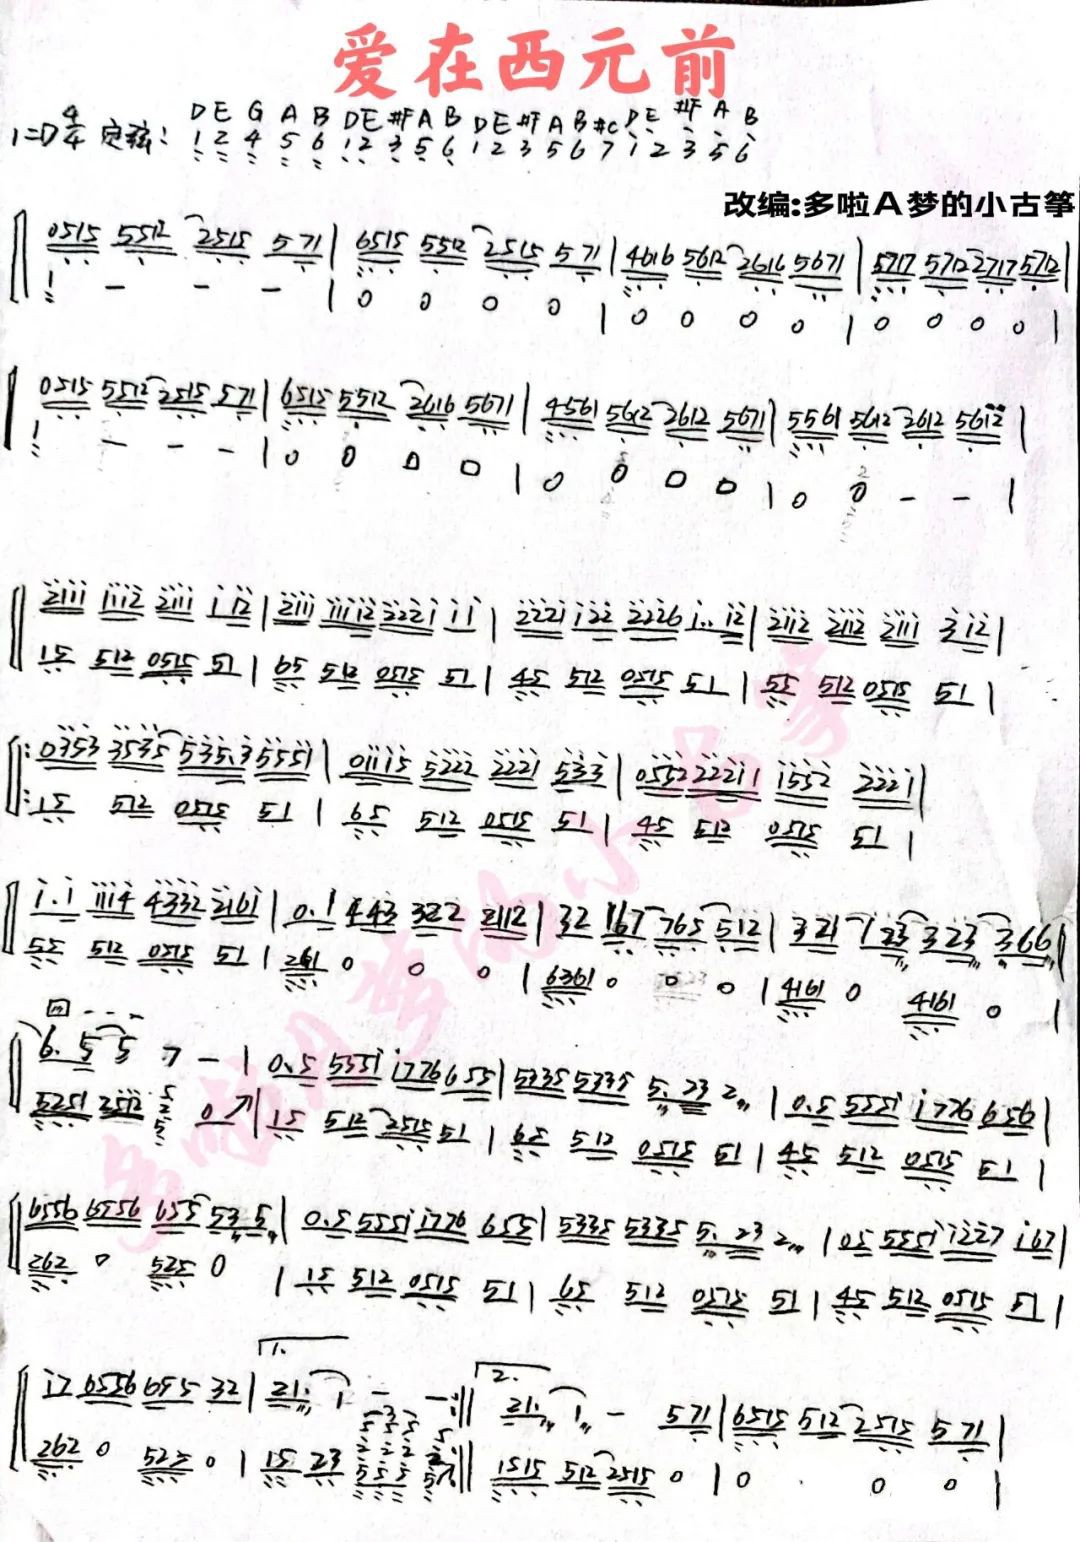 爱在西元前
D E G A B D E #F A B D E #F A B #C D E #F A B
1=D 4/4 定弦: 1 2 4 5 6 1 2 3 5 6 1 2 3 5 6 7 1 2 3 5 6
改编:多啦A梦的小古筝
0515 5512 2515 571 | 6515 5512 2515 571 | 4616 5612 2616 5671 | 5717 5712 2717 5712 |
1 - - - | 0 0 0 0 | 0 0 0 0 | 0 0 0 0 |
0515 5512 2515 571 | 6515 5512 2616 5671 | 4561 5612 2612 5671 | 5561 5612 2612 5612 |
1 - - - | 0 0 0 0 | 0 0 0 0 | 0 0 - - |
2111 1112 2111 1 12 | 2111 11112 2221 11 | 2221 122 2226 1.. 12 | 2112 2112 2111 312 |
15 512 0515 51 | 65 512 0515 51 | 45 512 0515 51 | 55 512 0515 51 |
0353 3535 535.3 5551 | 01115 5222 2221 533 | 0552 22211 1552 2221 |
15 512 0515 51 | 65 512 0515 51 | 45 512 0515 51 |
1.1 1114 4332 2161 | 0.1 443 322 2112 | 32 167 765 512 | 321 123 323 366 |
55 512 0515 51 | 261 0 0 0 | 6361 0 0 0 | 4161 0 4161 0 |
6. 5 5 7 - | 0.5 5551 1776 655 | 5335 5335 5. 23 2 | 0.5 5551 1776 656 |
5251 2512 0 | 15 512 2515 51 | 65 512 0515 51 | 45 512 0515 51 |
6556 6556 655 53 5 | 0.5 5551 1776 655 | 5335 5335 5. 23 2 | 05 5551 11227 167 |
262 0 525 0 | 15 512 0515 51 | 65 512 0515 51 | 45 512 0515 51 |
1. 2.
17 6556 655 32 | 21. 1 - - :|| 21. 1 - 571 | 6515 512 2515 571 |
262 0 525 0 | 15 23 :|| 1515 512 2515 0 | 0 . 0 0 |